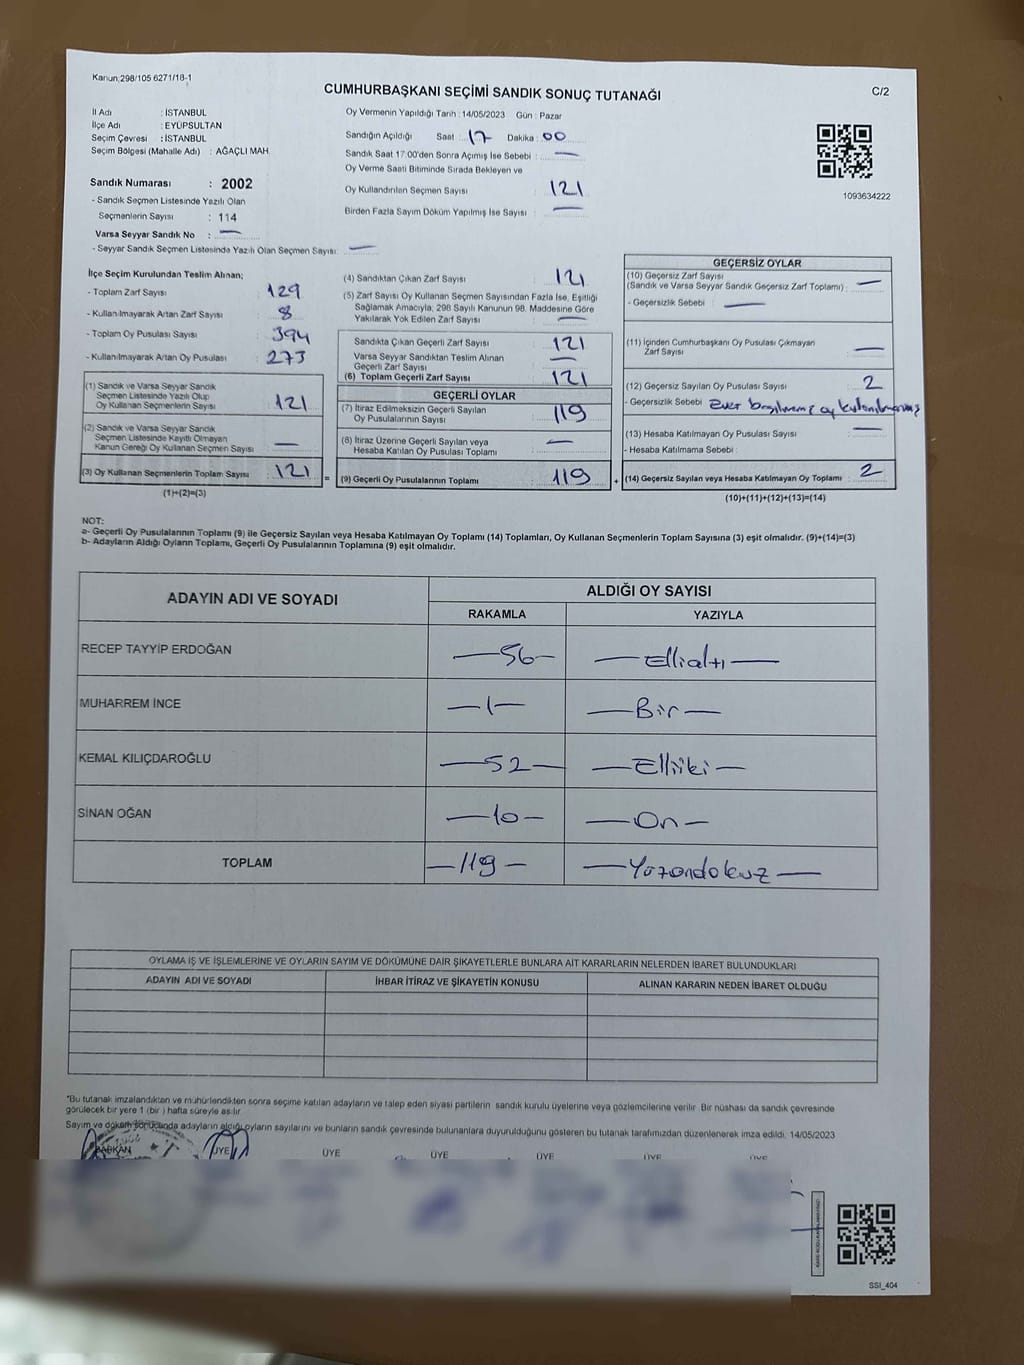 Kanun,298/105 6271/18-1
CUMHURBAŞKANI SEÇİMİ SANDIK SONUÇ TUTANAĞI
C/2
İl Adı : İSTANBUL
İlçe Adı : EYÜPSULTAN
Seçim Çevresi : İSTANBUL
Seçim Bölgesi (Mahalle Adı) : AĞAÇLI MAH.
Sandık Numarası : 2002
- Sandık Seçmen Listesinde Yazılı Olan
Seçmenlerin Sayısı : 114
Varsa Seyyar Sandık No : —
- Seyyar Sandık Seçmen Listesinde Yazılı Olan Seçmen Sayısı: —
Oy Vermenin Yapıldığı Tarih : 14/05/2023 Gün : Pazar
Sandığın Açıldığı Saat : 17 Dakika : 00
Sandık Saat 17:00'den Sonra Açımış İse Sebebi : —
Oy Verme Saati Bitiminde Sırada Bekleyen ve
Oy Kullandırılan Seçmen Sayısı : 121
Birden Fazla Sayım Döküm Yapılmış İse Sayısı : —
1093634222
İlçe Seçim Kurulundan Teslim Alınan;
- Toplam Zarf Sayısı : 129
- Kullanılmayarak Artan Zarf Sayısı : 8
- Toplam Oy Pusulası Sayısı : 394
- Kullanılmayarak Artan Oy Pusulası : 273
(1) Sandık ve Varsa Seyyar Sandık
Seçmen Listesinde Yazılı Olup
Oy Kullanan Seçmenlerin Sayısı : 121
(2) Sandık ve Varsa Seyyar Sandık
Seçmen Listesinde Kayıtlı Olmayan
Kanun Gereği Oy Kullanan Seçmen Sayısı : —
(3) Oy Kullanan Seçmenlerin Toplam Sayısı : 121
(1)+(2)=(3)
(4) Sandıktan Çıkan Zarf Sayısı : 121
(5) Zarf Sayısı Oy Kullanan Seçmen Sayısından Fazla İse, Eşitliği
Sağlamak Amacıyla; 298 Sayılı Kanunun 98. Maddesine Göre
Yakılarak Yok Edilen Zarf Sayısı : —
Sandıkta Çıkan Geçerli Zarf Sayısı : 121
Varsa Seyyar Sandıktan Teslim Alınan
Geçerli Zarf Sayısı : —
(6) Toplam Geçerli Zarf Sayısı : 121
=
GEÇERLİ OYLAR
(7) İtiraz Edilmeksizin Geçerli Sayılan
Oy Pusulalarının Sayısı : 119
(8) İtiraz Üzerine Geçerli Sayılan veya
Hesaba Katılan Oy Pusulası Toplamı : —
(9) Geçerli Oy Pusulalarının Toplamı : 119
+
GEÇERSİZ OYLAR
(10) Geçersiz Zarf Sayısı
(Sandık ve Varsa Seyyar Sandık Geçersiz Zarf Toplamı) : —
- Geçersizlik Sebebi : —
(11) İçinden Cumhurbaşkanı Oy Pusulası Çıkmayan
Zarf Sayısı : —
(12) Geçersiz Sayılan Oy Pusulası Sayısı : 2
- Geçersizlik Sebebi : Evet oy
(13) Hesaba Katılmayan Oy Pusulası Sayısı : —
- Hesaba Katılmama Sebebi :
(14) Geçersiz Sayılan veya Hesaba Katılmayan Oy Toplamı : 2
(10)+(11)+(12)+(13)=(14)
NOT:
a- Geçerli Oy Pusulalarının Toplamı (9) ile Geçersiz Sayılan veya Hesaba Katılmayan Oy Toplamı (14) Toplamları, Oy Kullanan Seçmenlerin Toplam Sayısına (3) eşit olmalıdır. (9)+(14)=(3)
b- Adayların Aldığı Oyların Toplamı, Geçerli Oy Pusulalarının Toplamına (9) eşit olmalıdır.
ADAYIN ADI VE SOYADI
ALDIĞI OY SAYISI
RAKAMLA YAZIYLA
RECEP TAYYİP ERDOĞAN —56— —Ellialtı—
MUHARREM İNCE —1— —Bir—
KEMAL KILIÇDAROĞLU —52— —Elliiki—
SİNAN OĞAN —10— —On—
TOPLAM —119— —Yüzondokuz—
OYLAMA İŞ VE İŞLEMLERİNE VE OYLARIN SAYIM VE DÖKÜMÜNE DAİR ŞİKAYETLERLE BUNLARA AİT KARARLARIN NELERDEN İBARET BULUNDUKLARI
ADAYIN ADI VE SOYADI İHBAR İTİRAZ VE ŞİKAYETİN KONUSU ALINAN KARARIN NEDEN İBARET OLDUĞU
*Bu tutanak imzalandıktan ve mühürlendikten sonra seçime katılan adayların ve talep eden siyasi partilerin sandık kurulu üyelerine veya gözlemcilerine verilir. Bir nüshası da sandık çevresinde
görülecek bir yere 1 (bir ) hafta süreyle asılır.
Sayım ve döküm sonucunda adayların aldığı oyların sayılarını ve bunların sandık çevresinde bulunanlara duyurulduğunu gösteren bu tutanak tarafımızdan düzenlenerek imza edildi. 14/05/2023
BAŞKAN ÜYE ÜYE ÜYE ÜYE ÜYE ÜYE
SSI_404